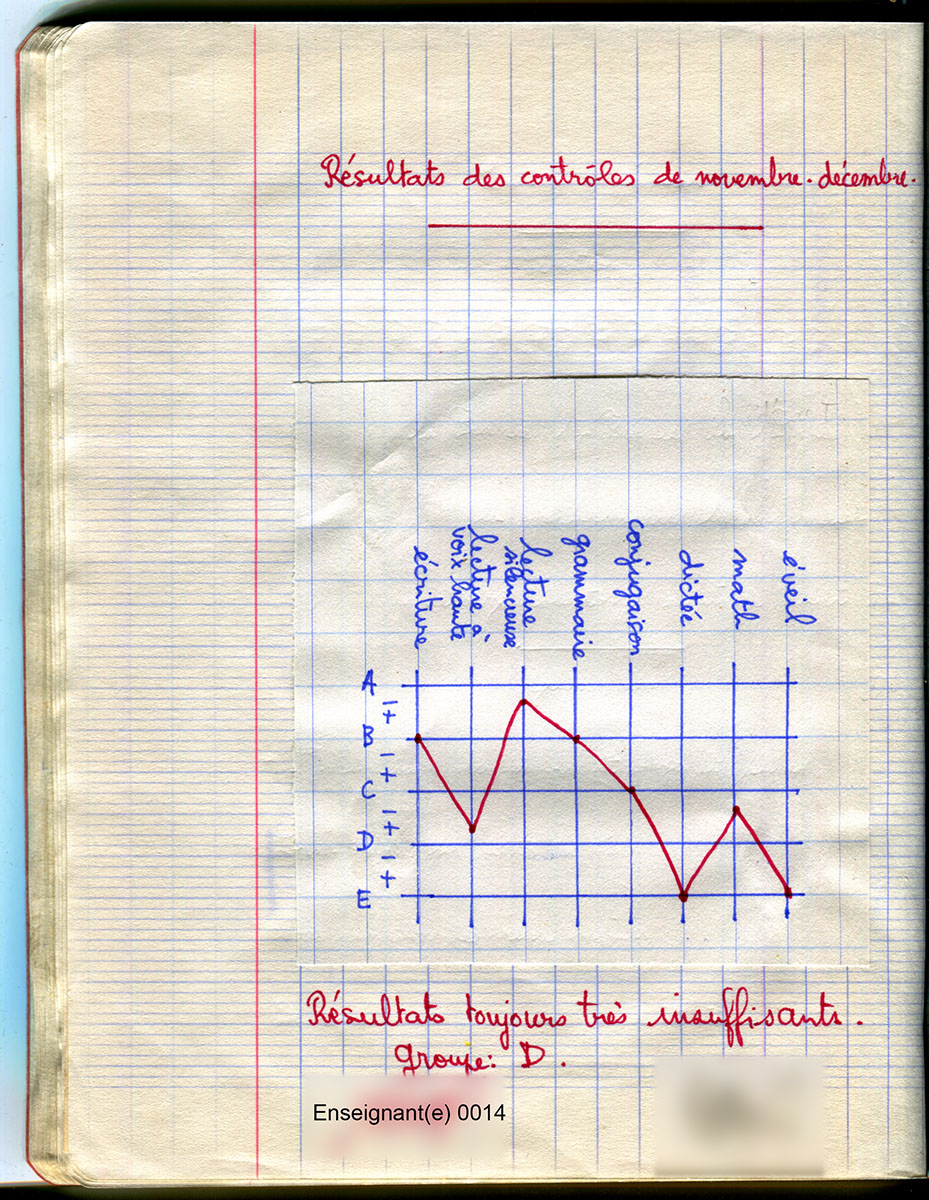 Résultats des contrôles de novembre. décembre.
écriture
lecture à
voix haute
lecture
silencieuse
grammaire
conjugaison
dictée
math
éveil
A
- +
B
- +
C
- +
D
- +
E
Résultats toujours très insuffisants.
Groupe: D.
Enseignant(e) 0014